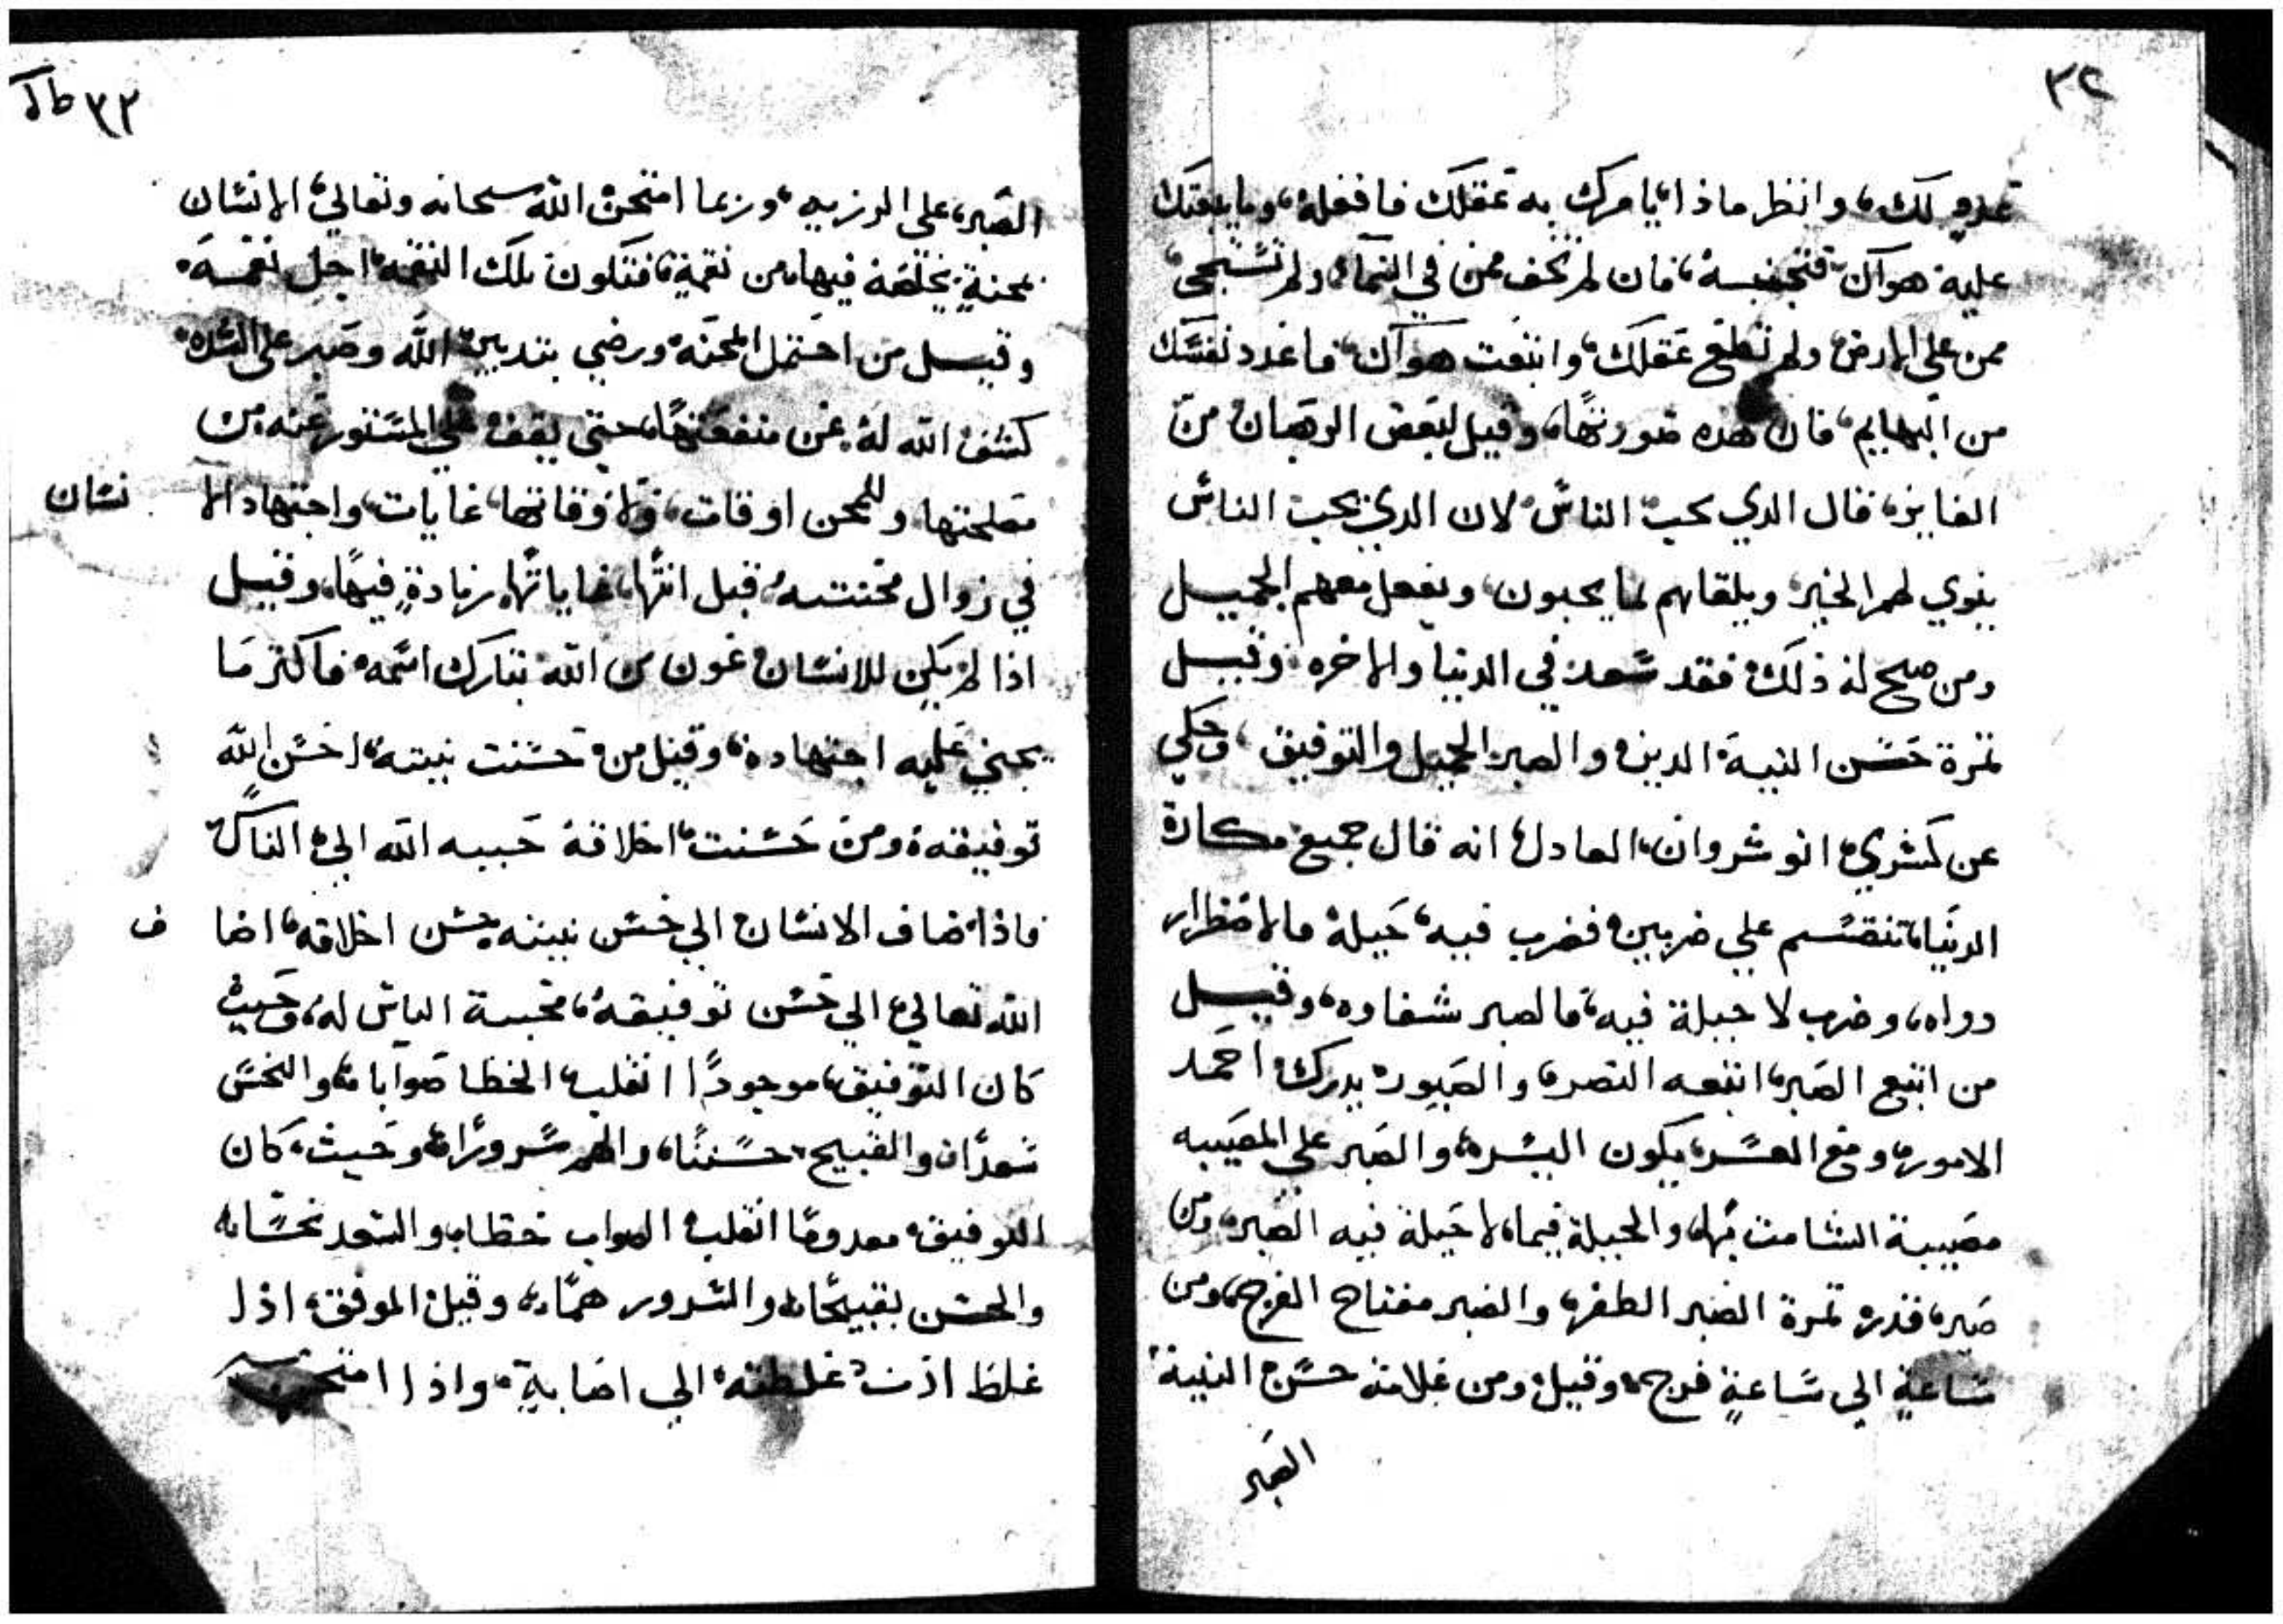 ٣٢
عدو لك، وانظر ماذا يامرك به عقلك فافعله، وما يبعتك
عليه هواك فتجنبه، فان لم تخف ممن في السماء، ولم تستحي
ممن على الارض ولم تطع عقلك، واتبعت هواك، فاعدد نفسك
من البهايم، فان هذه صورتها، وقيل لبعض الرهبان من
الفايز، فقال الدي يحب الناس لان الدي يحب الناس
ينوي لهم الخير ويلقاهم بما يحبون، ويفعل معهم الجميل
ومن صح له ذلك فقد سعد في الدنيا والاخره وقيل
تمرة حسن النية الدين والصبر الجميل والتوفيق، وحكي
عن كسري انوشروان العادل انه قال جميع مكاره
الدنيا تنقسم علي ضربين فضرب فيه حيلة فالاضطرار
دواه، وضرب لا حيلة فيه، فالصبر شفاوه، وقيل
من اتبع الصبر، اتبعه النصر، والصبور يدرك احمد
الامور، ومع العسر، يكون اليسر، والصبر علي المصيبه
مصيبة الشامت بها، والحيلة فيما لا حيلة فيه الصبر، ومن
صبر، قدر، تمرة الصبر الظفر، والصبر مفتاح الفرج، ومن
ساعةٍ الي ساعةٍ فرج، وقيل ومن علامة حسن النية
الصبر
٣٣ ط
الصبر على الرزيه، وربما امتحن الله سبحانه وتعالي الانسان
بمحنةٍ يخلصه فيها من نقمة، فتكون تلك النقمه اجل نعمه
وقيل من احتمل المحنه ورضي بتدبير الله وصبر على الشده
كشف الله له عن منفعتها، حتي يقف علي المستور عنه من
مصلحتها، وللمحن اوقات، ولاوقاتها غايات، واجتهاد الا نسان
في زوال محنته قبل انتها، غاياتها، زيادةٍ فيها، وقيل
اذا لم يكن للانسان عون من الله تبارك اسمه فاكتر ما
يجني عليه اجتهاده، وقيل من حسنت نيته، احسن الله
توفيقه، ومن حسنت اخلاقه حببه الله الي الناس
فاذا ضاف الانسان الي حسن نيته حسن اخلاقه، اضا ف
الله تعالي الي حسن توفيقه، محبة الناس له، وحيث
كان التوفيق، موجودًا انقلب الخطا صوابا، والنحس
سعدًا، والقبيح حسنًا، والهم سرورًا، وحيث كان
التوفيق معدومًا انقلب الصواب خطا، والسعد نحسًا،
والحسن بقبيحًا، والسرور همًا، وقيل الموفق، اذا
غلط ادت غلطته الي اصابةٍ، واذا امتحن